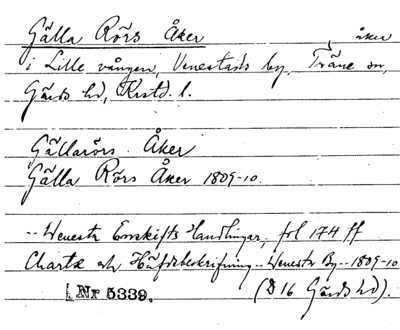 Gälla Rörs Åker, åker
i Lille vången, Venestads by, Träne sn,
Gärds hd, Krstd. l.
Gällarörs Åker
Gälla Rörs Åker 1809-10.
-- Wenesta Enskifts Handlingar, fol 174 ff
Charta och Häfdebeskrifning -- Wenesta By -- 1809-10
Nr 5339. (D 16 Gärds hd).